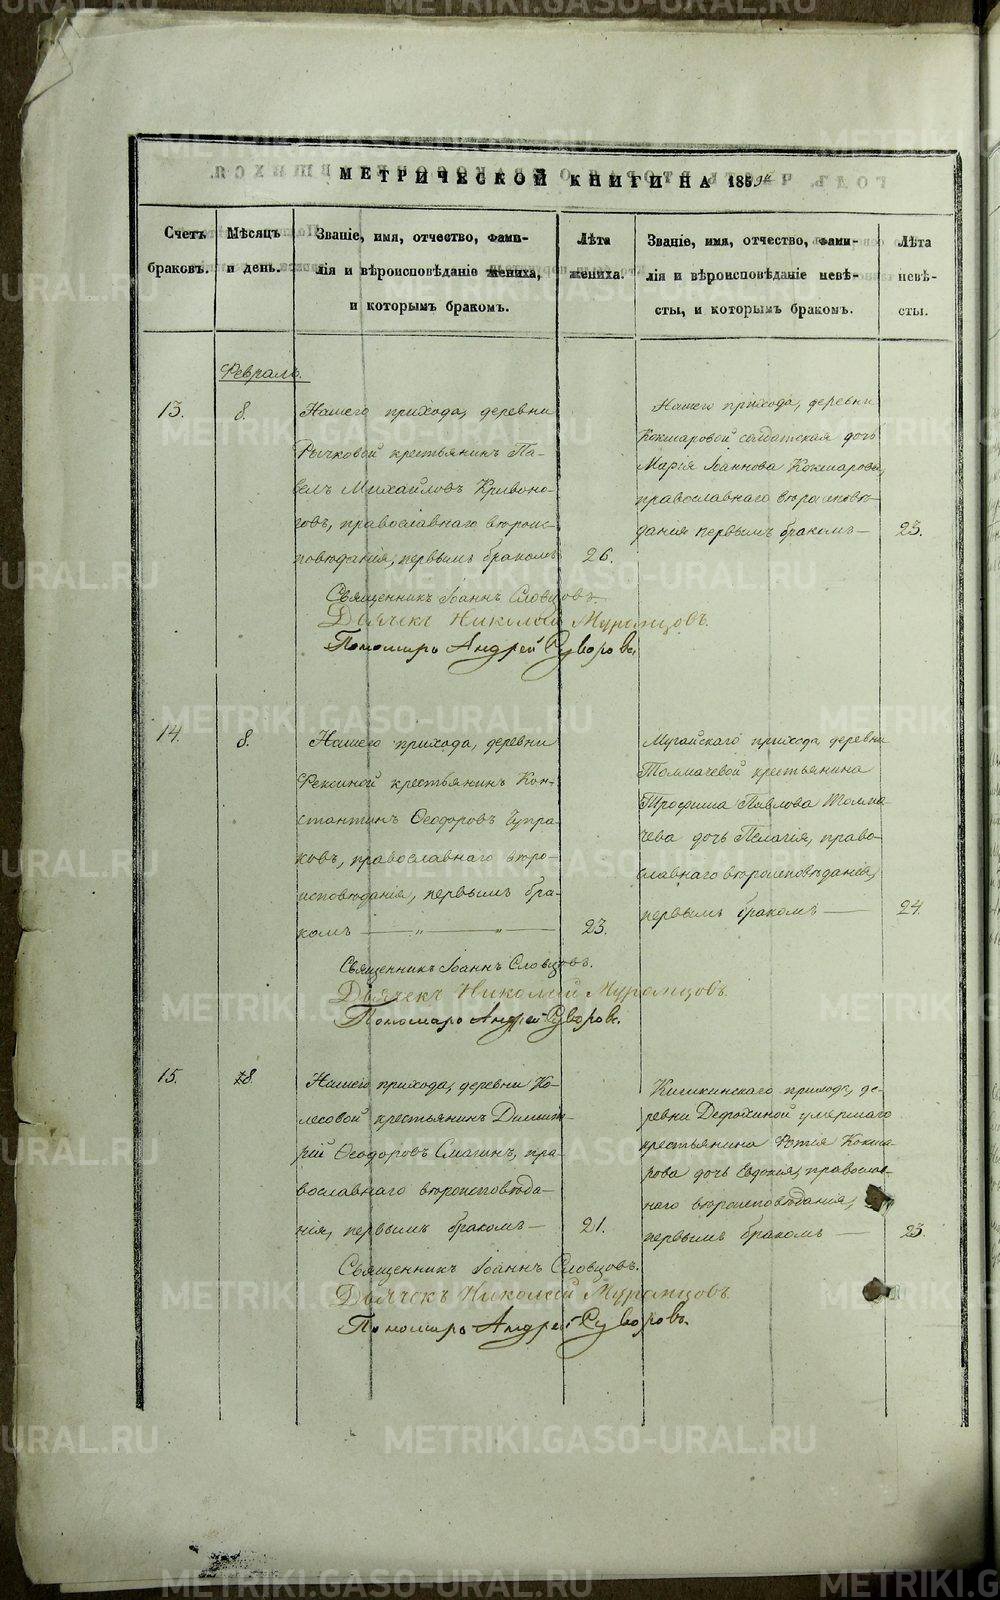 МЕТРИЧЕСКОЙ КНИГИ НА 1859й
Счетъ браковъ.
Мѣсяцъ и день.
Званіе, имя, отчество, фами-
лія и вѣроисповѣданіе жениха,
и которымъ бракомъ.
Лѣта
жениха.
Званіе, имя, отчество, фами-
лія и вѣроисповѣданіе невѣ-
сты, и которымъ бракомъ.
Лѣта
невѣ-
сты.
Февраль.
13.
8.
Нашего прихода, деревни
Рычковой крестьянинъ Па-
велъ Михайловъ Кривоно-
говъ, православнаго вѣроис-
повѣданія, первымъ бракомъ
26.
Нашего прихода, деревни
Кокшаровой солдатская дочь
Марія Іоаннова Кокшарова,
православнаго вѣроисповѣ-
данія первымъ бракомъ —
23.
Священникъ Іоаннъ Словцовъ
Дьячекъ Николай Муромцовъ.
Пономарь Андрей Суворовъ.
14.
8.
Нашего прихода, деревни
крестьянинъ Кон-
стантинъ Ѳеодоровъ Чупра-
ковъ, православнаго вѣро-
исповѣданія, первымъ бра-
комъ — „ — „ —
23.
Мугайскаго прихода, деревни
Толмачевой крестьянина
Трофима Павлова Толма-
чева дочь Пелагія, право-
славнаго вѣроисповѣданія,
первымъ бракомъ —
24.
Священникъ Іоаннъ Словцовъ.
Дьячекъ Николай Муромцовъ.
Пономарь Андрей Суворовъ.
15.
8.
Нашего прихода, деревни Ко-
лесовой крестьянинъ Димит-
рій Ѳеодоровъ Смагинъ, пра-
вославнаго вѣроисповѣда-
нія, первымъ бракомъ —
21.
Кишкинскаго прихода, де-
ревни умершаго
крестьянина Фотія Кокша-
рова дочь Евдокія, православ-
наго вѣроисповѣданія,
первымъ бракомъ —
23.
Священникъ Іоаннъ Словцовъ.
Дьячекъ Николай Муромцовъ.
Пономарь Андрей Суворовъ.
METRIKI.GASO-URAL.RU